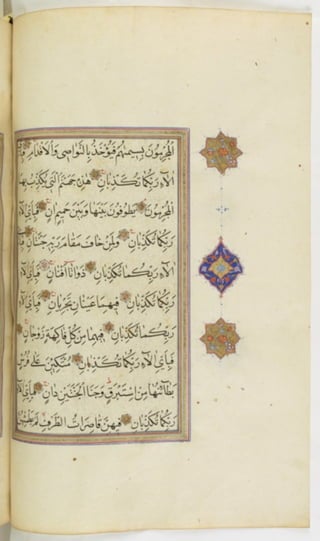 الْمُجْرِمُونَ بِسِيمٰهُمْ فَيُؤْخَذُ بِالنَّوَاصِي وَالْأَقْدَامِ فَبِأَيِّ
اٰلَاءِ رَبِّكُمَا تُكَذِّبَانِ هٰذِهِ جَهَنَّمُ الَّتِي يُكَذِّبُ بِهَا
الْمُجْرِمُونَ يَطُوفُونَ بَيْنَهَا وَبَيْنَ حَمِيمٍ اٰنٍ فَبِأَيِّ اٰلَاءِ
رَبِّكُمَا تُكَذِّبَانِ وَلِمَنْ خَافَ مَقَامَ رَبِّهِ جَنَّتَانِ فَبِأَيِّ
اٰلَاءِ رَبِّكُمَا تُكَذِّبَانِ ذَوَاتَا أَفْنَانٍ فَبِأَيِّ اٰلَاءِ
رَبِّكُمَا تُكَذِّبَانِ فِيهِمَا عَيْنَانِ تَجْرِيَانِ فَبِأَيِّ اٰلَاءِ
رَبِّكُمَا تُكَذِّبَانِ فِيهِمَا مِنْ كُلِّ فَاكِهَةٍ زَوْجَانِ
فَبِأَيِّ اٰلَاءِ رَبِّكُمَا تُكَذِّبَانِ مُتَّكِئِينَ عَلٰى فُرُشٍ
بَطَائِنُهَا مِنْ إِسْتَبْرَقٍ وَجَنَا الْجَنَّتَيْنِ دَانٍ فَبِأَيِّ اٰلَاءِ
رَبِّكُمَا تُكَذِّبَانِ فِيهِنَّ قَاصِرَاتُ الطَّرْفِ لَمْ يَطْمِثْهُنَّ